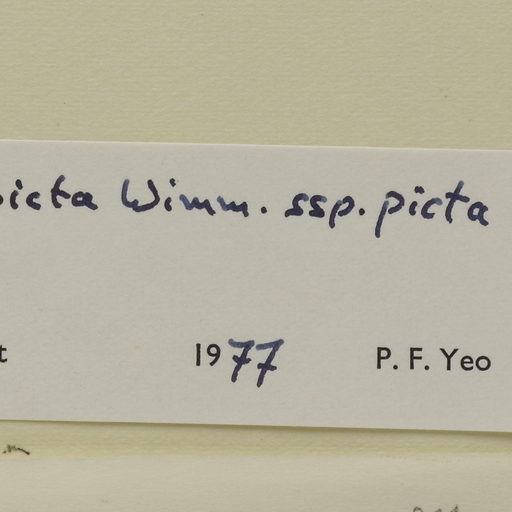 picta Wimm. ssp. picta
t 1977 P. F. Yeo